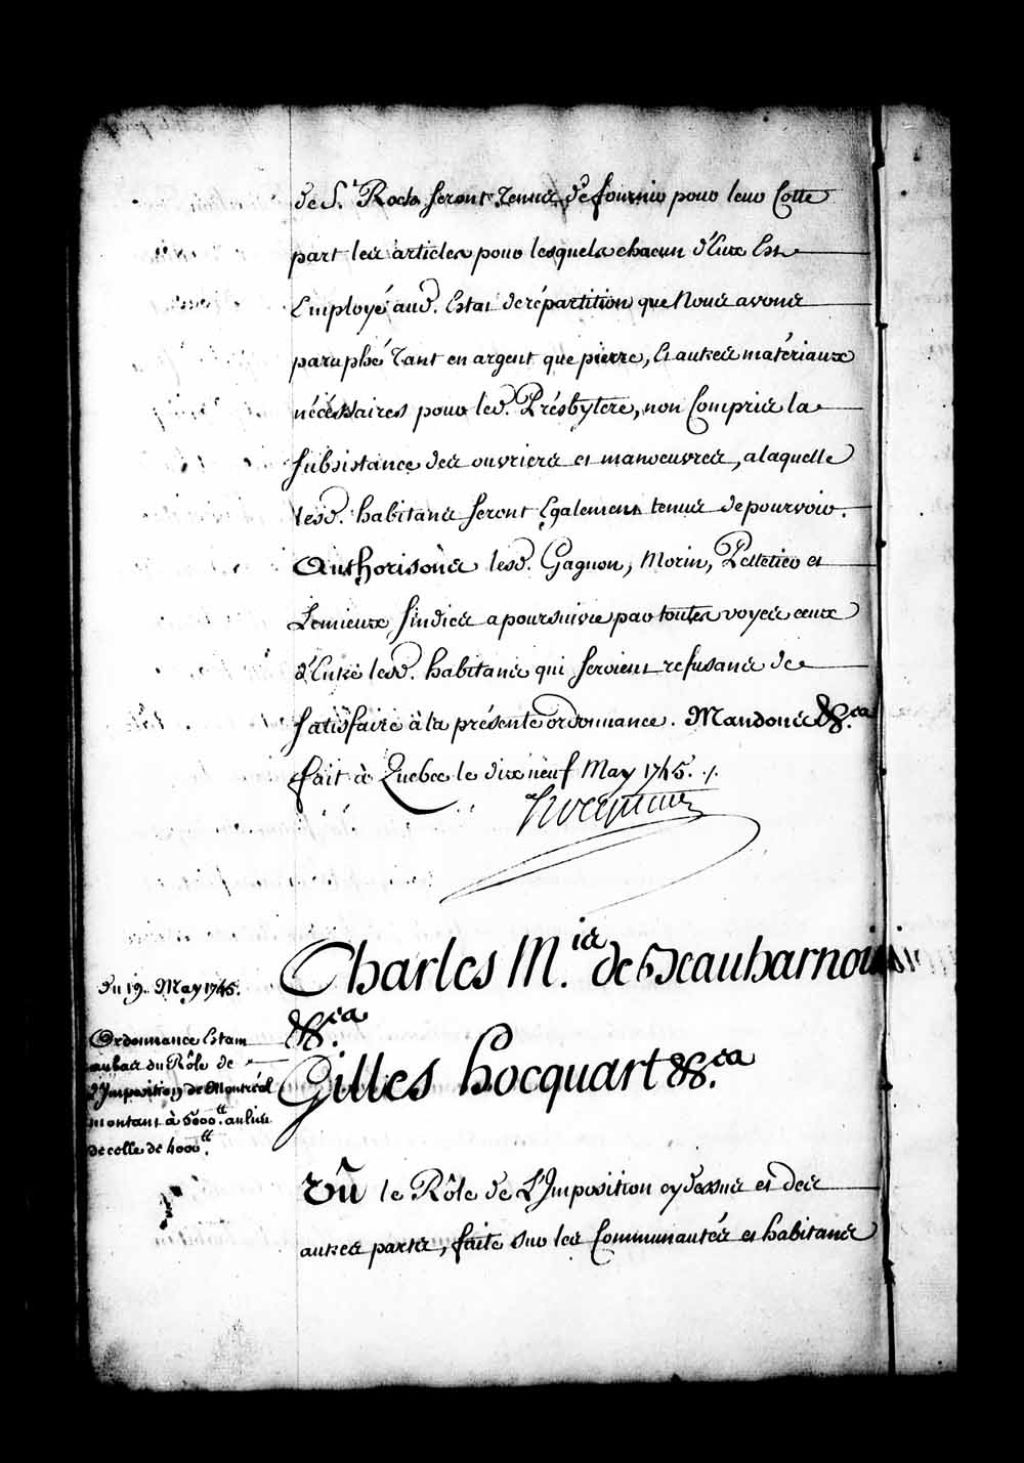 de St. Rochs seront Tenus de fournir pour leur Cotte
part les articles pour lesquels chacun d'Eux Est
Employé aud. Estat de répartition que Nous avons
paraphé Tant en argent que pierre, Et autres matériaux
nécéssaires pour led. Présbytere, non Compris la
subsistance des ouvriers et manoeuvres, a laquelle
lesd. habitans seront Egalement tenus de pourvoir.
Authorisons lesd. Gagnon, Morin, Pelletier et
Lemieux, sindics a poursuivre par toutes voyes ceux
d'Entre lesd. habitans qui seroient refusans de
satisfaire à la présente ordonnance. Mandons &.ca
fait à Quebec le dix neuf May 1745. ./.
Hocquart
Charles M.is de Beauharnois
&.ca
Gilles hocquart &.ca
Du 19. May 1745.
Ordonnance Estant
au bas du Rôle de
L'Imposition de Montréal
montant à 5000.tt au lieu
de celle de 4000.tt
Vû le Rôle de L'Imposition cy dessus et des
autres parts, faite sur les Communautés et habitans